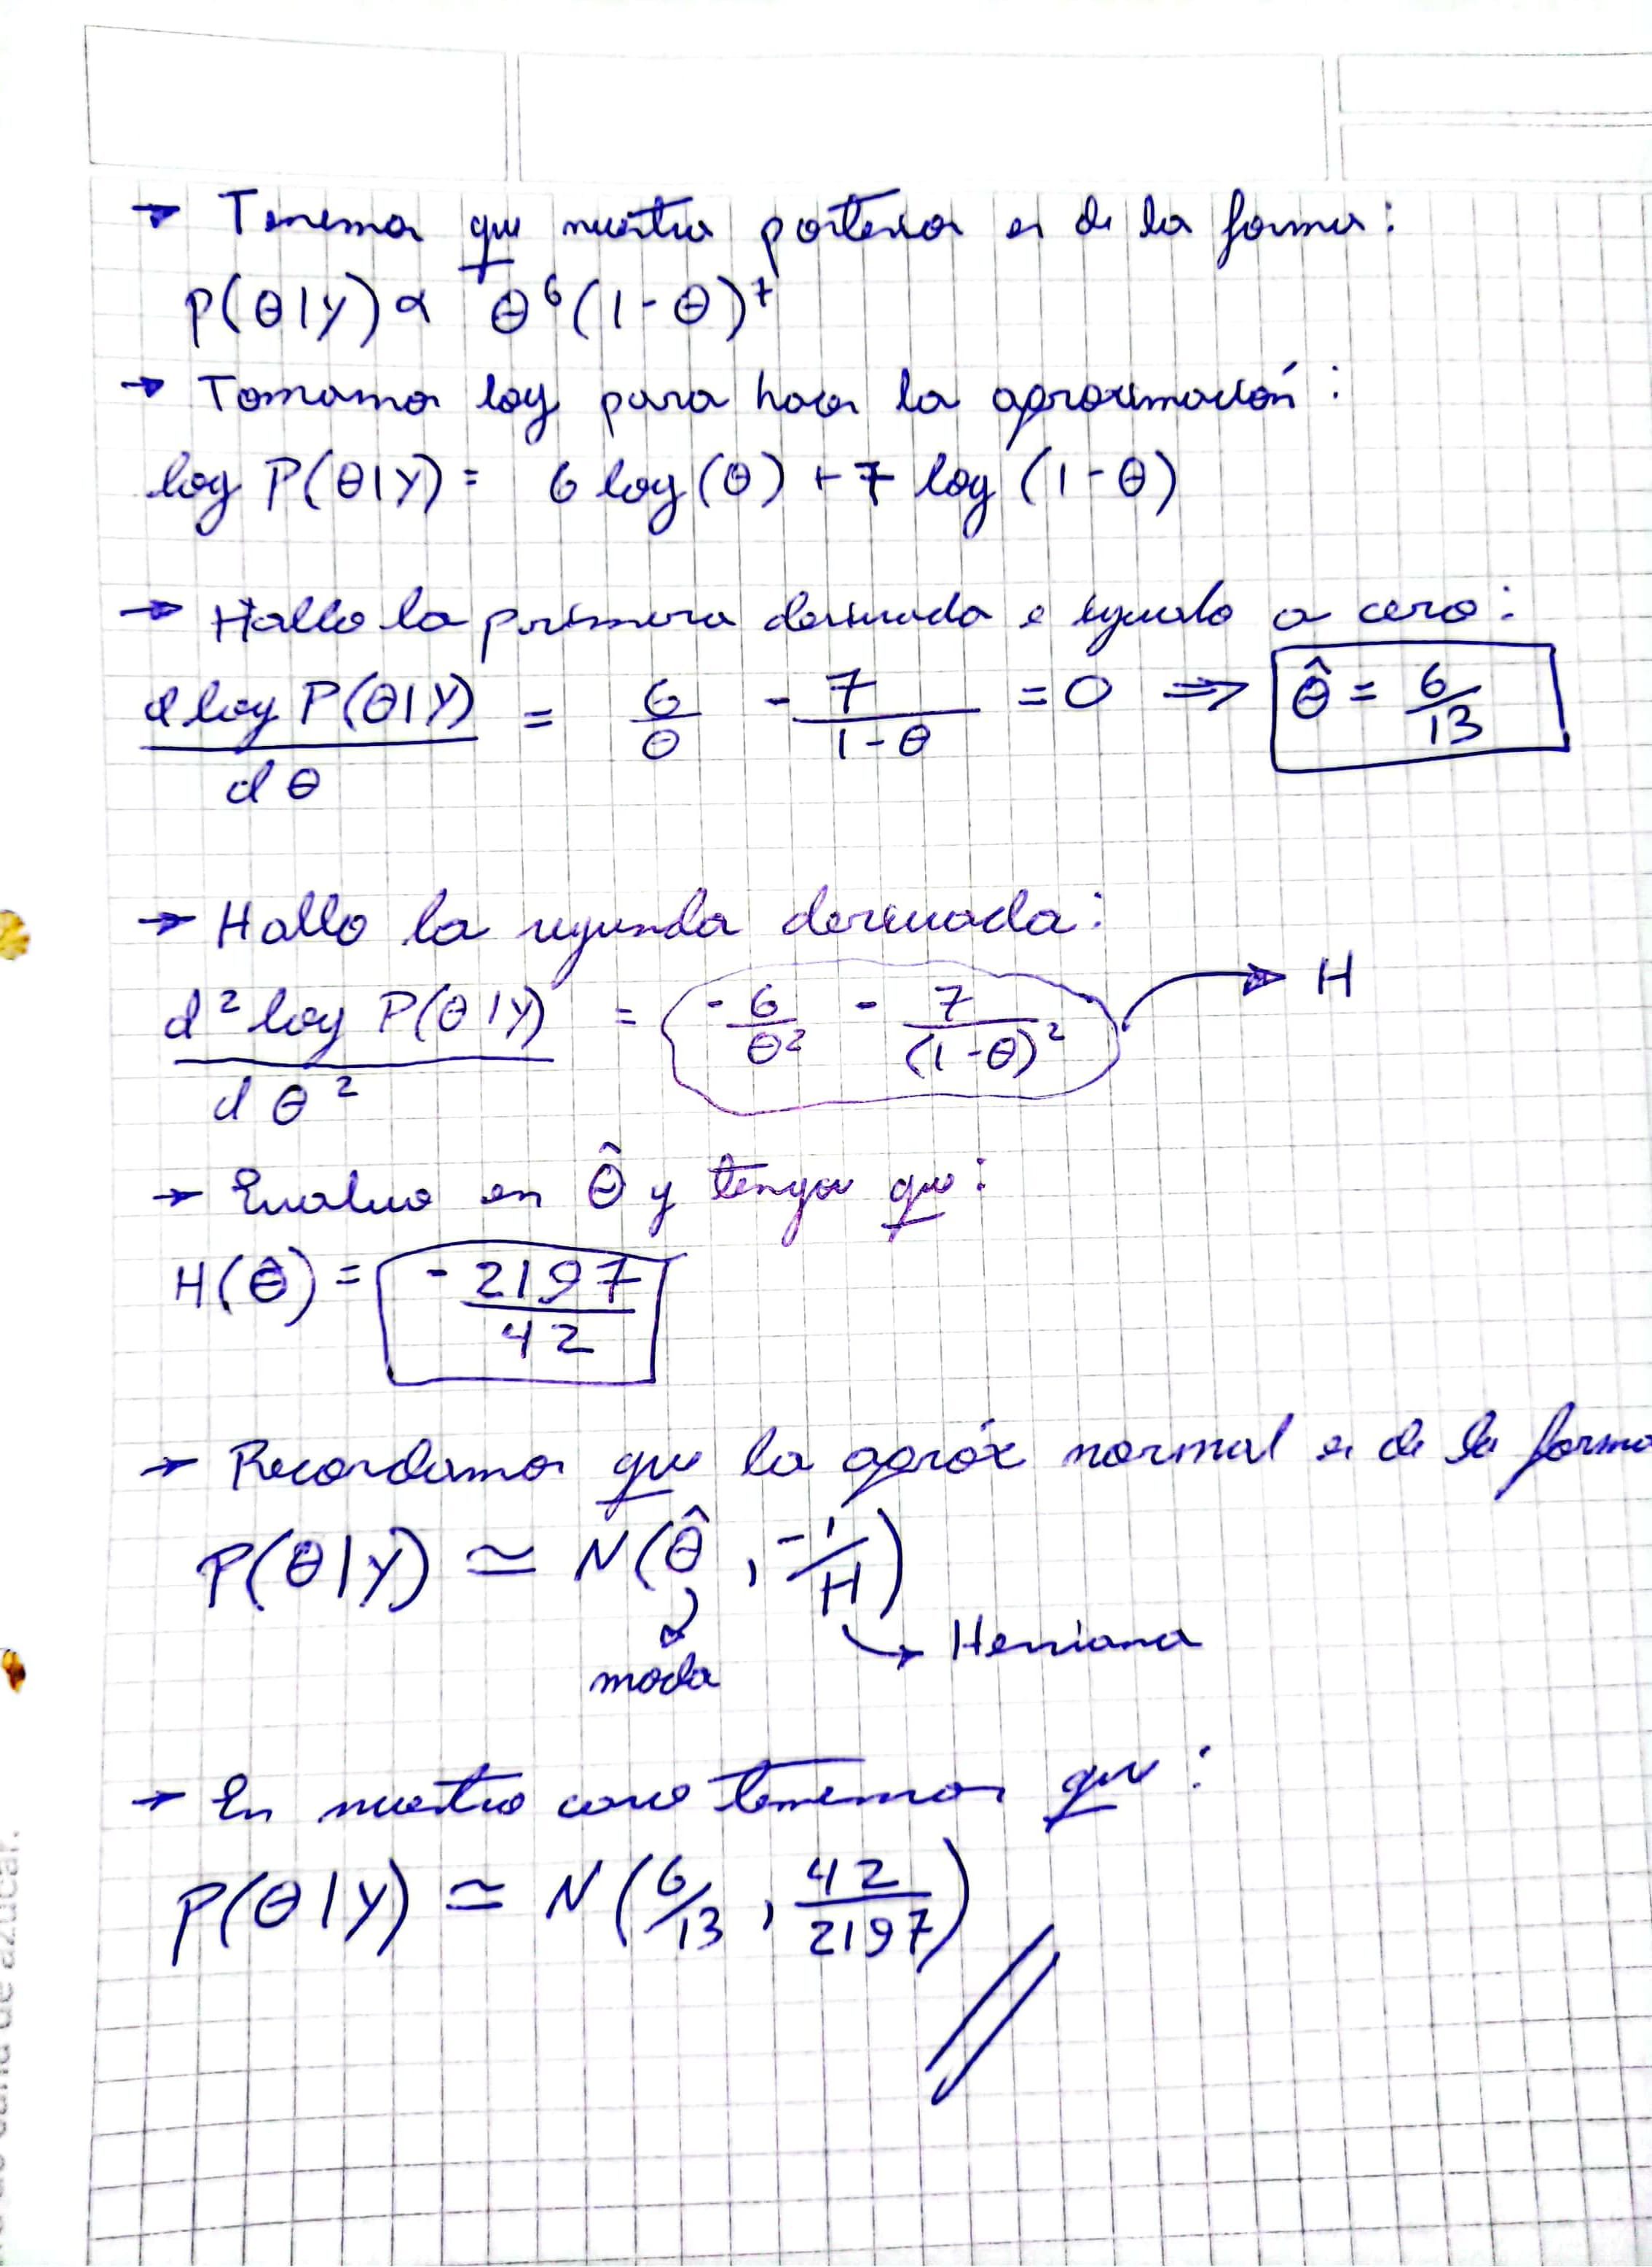 → Tenemos que nuestra posterior es de la forma:
P(θ|Y) ∝ θ⁶(1-θ)⁷
→ Tomamos log para hacer la aproximación:
log P(θ|Y) = 6 log(θ) + 7 log (1-θ)
→ Hallo la primera derivada e igualo a cero:
d log P(θ|Y) / dθ = 6/θ - 7/(1-θ) = 0 ⇒ θ̂ = 6/13
→ Hallo la segunda derivada:
d² log P(θ|Y) / dθ² = -6/θ² - 7/(1-θ)² → H
→ Evaluo en θ̂ y tengo que:
H(θ̂) = -2197/42
→ Recordamos que la apróx normal es de la forma
P(θ|Y) ≃ N(θ̂, -1/H)
→ Hessiana
moda
→ En nuestro caso tenemos que:
P(θ|Y) ≃ N(6/13, 42/2197)
de caña de azúcar.